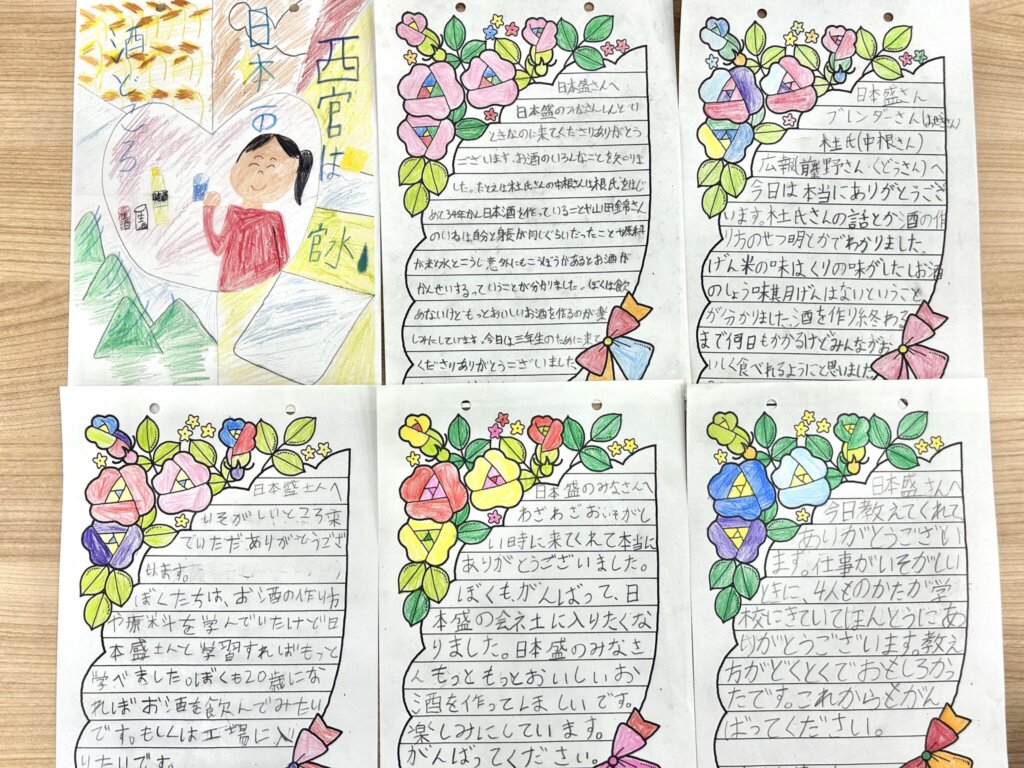 西宮は
日本の
酒どころ
宮水
日本盛さんへ
日本盛のみなさんしんどい
ときなのに来てくださりありがとう
ございます。お酒のいろんなことを知りま
した。たとえば杜氏さんの中根さんは根氏をはじ
めて34年かん日本酒を作っていることや山田錦さん
のいねは自分と身長が同じぐらいだったことや原料
が米と水とこうじ意外にもこうぼうがあるとお酒が
かんせいするっていうことが分かりました。ぼくは飲
めないけどもっとおいしいお酒を作るのが楽
しみにしています。今日は三年生のために来て
くださりありがとうございました
日本盛さん
ブレンダーさん
杜氏(中根さん)
広報藤野さん・くどうさん)へ
今日は本当にありがとうござ
います。杜氏さんの話とか酒の作
り方のせつ明とかでわかりました。
げん米の味はくりの味がしたしお酒
のしょう味期げんはないということ
が分かりました。酒を作り終わる
まで何日もかかるけどみんながお
いしく食べれるようにと思いました。
日本盛さんへ
いそがしいところ来
ていただありがとうござ
います。
ぼくたちは、お酒の作り方
や原米斗を学んでいたけど日
本盛さんと学習すればもっと
学べました。ぼくも20歳にな
ればお酒を飲んでみたい
です。もしくは工場に入
りたいです。
日本盛のみなさんへ
わざわざおいそがし
い時に来てくれて本当に
ありがとうございました。
ぼくも、がんばって、日
本盛の会社に入りたくな
りました。日本盛のみなさ
んもっともっとおいしいお
酒を作ってしほしいです。
楽しみにしています。
がんばってください。
日本盛さんへ
今日教えてくれて
ありがとうござい
ます。仕事がいそがしい
ときに、4人ものかたが学
校にきていてほんとうにあ
りがとうございます。教え
方がどくとくでおもしろかっ
たです。これからもがん
ばってください。